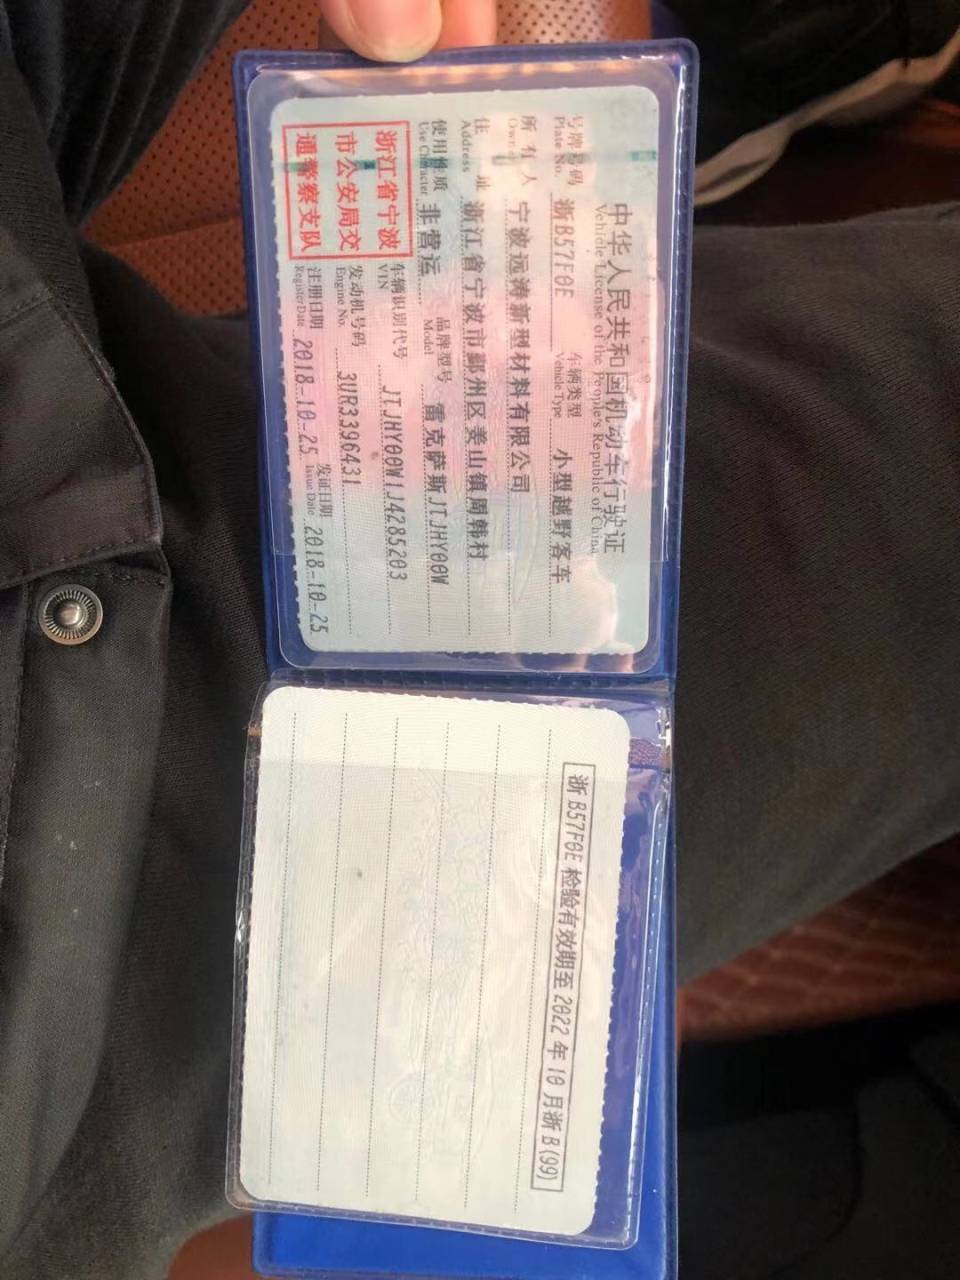 中华人民共和国机动车行驶证
Vehicle License of the People's Republic of China
号牌号码 浙B57F0E 车辆类型 小型越野客车
Plate No. Vehicle Type
所有人 宁波远涛新型材料有限公司
Owner
住址 浙江省宁波市鄞州区姜山镇周韩村
Address
使用性质 非营运 品牌型号 雷克萨斯JTJHY00W
Use Character Model
浙江省宁波
市公安局交
通警察支队
车辆识别代号 JTJHY00W1J4285203
VIN
发动机号码 3UR3396431
Engine No.
注册日期 2018-10-25 发证日期 2018-10-25
Register Date Issue Date
浙B57F0E检验有效期至2022年10月浙B(99)